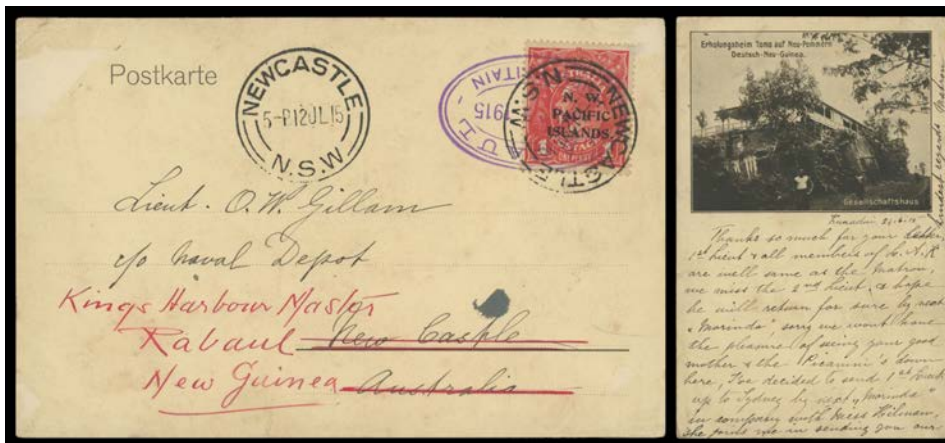 Postkarte
NEWCASTLE
5-P 12 JL 15
N.S.W
1915
BRITAIN
N. W.
PACIFIC
ISLANDS.
ONE PENNY
NEWCASTLE
N.S.W
Lieut. O. W. Gillam
c/o Naval Depot
Kings Harbour Master
Rabaul New Castle
New Guinea Australia
Erholungsheim Toma auf Neu-Pommern
Deutsch-Neu-Guinea.
Gesellschaftshaus
Thanks so much for your letter,
1st Lieut & all members of
are well same as the Matron,
we miss the 2nd Lieut, & hope
he will return for sure by next
"Morinda" sorry we wont have
the pleasure of seeing your good
mother & the Picanini's down
here, I've decided to send 1st Lieut
up to Sydney by next "Morinda"
in company with Miss
she joins me in sending you our
kindest regards